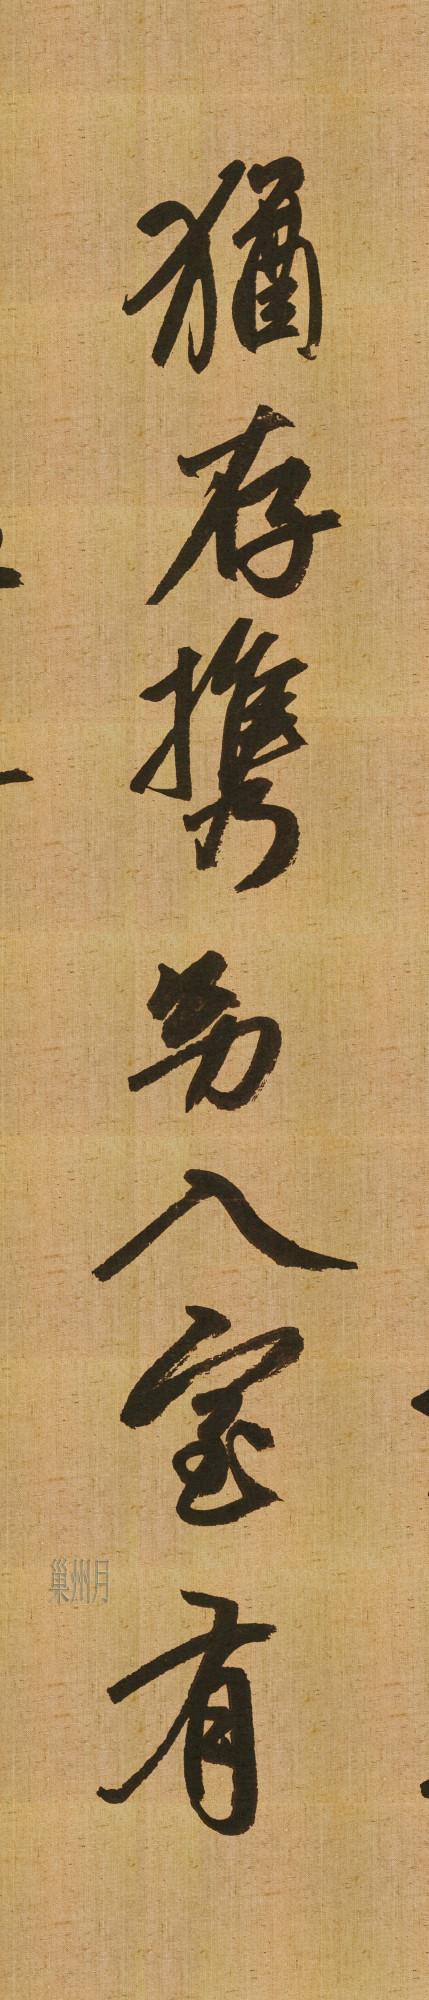 猶存攜幼入室有
巢州月